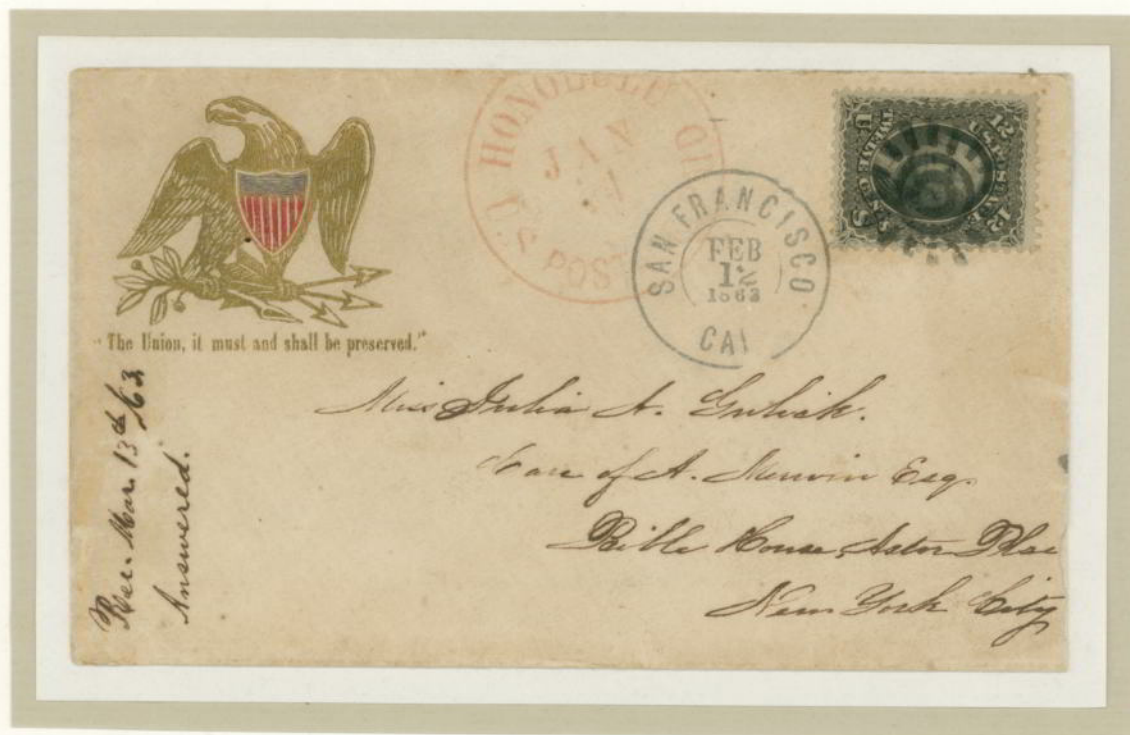 HONOLULU
U.S. POST
JAN
SAN FRANCISCO
FEB
12
1863
CAL
12 U.S. POSTAGE 12
TWELVE CENTS
U S
"The Union, it must and shall be preserved."
Rec. Mar. 13th /63
Answered.
Miss Julia A. Gulick.
Care of A. Merwin Esq.
Bible House, Astor Place
New York City